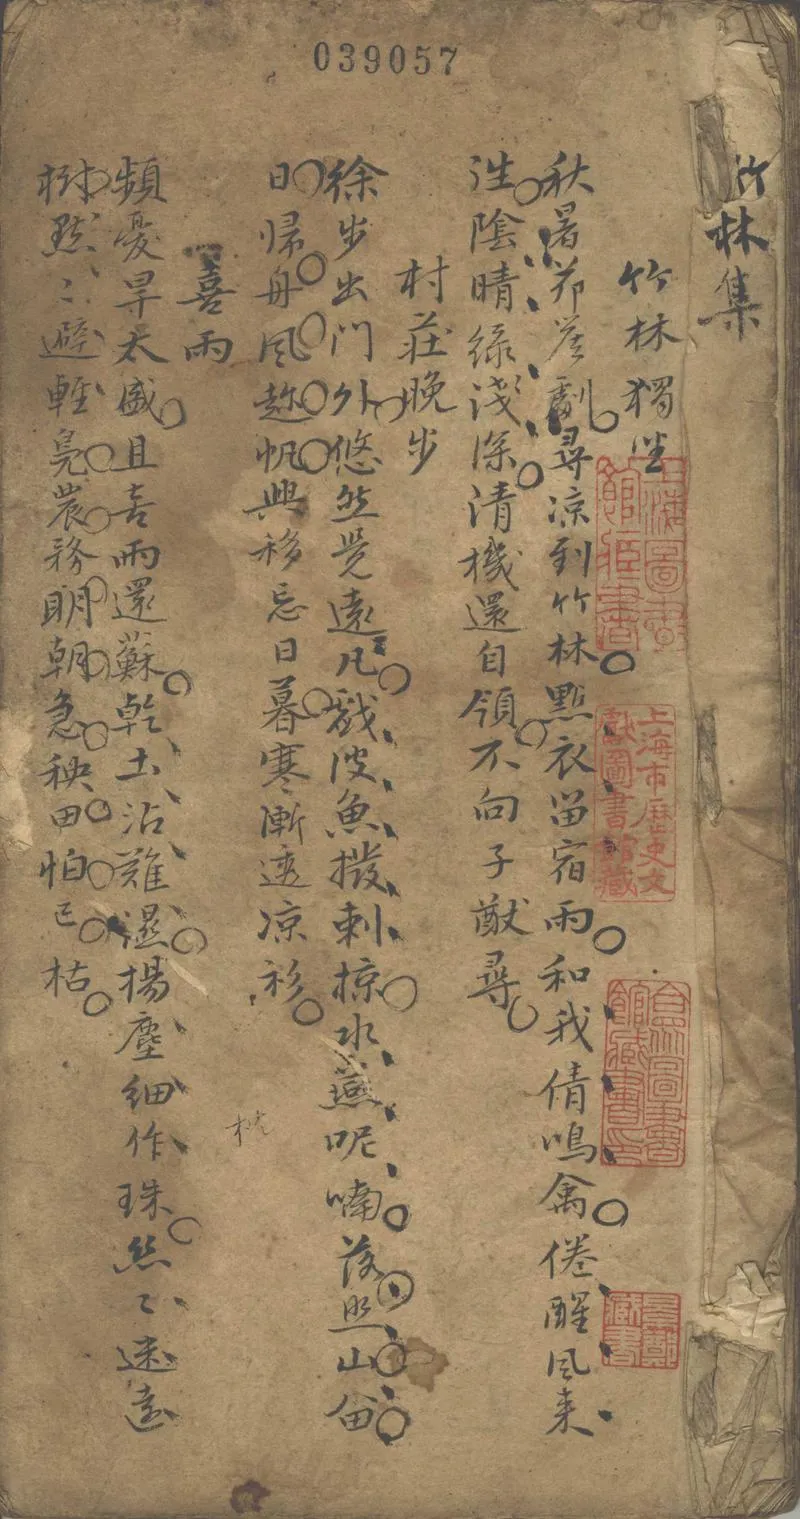 039057
竹林集
竹林獨坐
秋暑節蒼劇尋凉到竹林點衣留宿雨和我倩鳴禽倦醒風来
泩陰晴緑淺深清機還自領不向子猷尋
村莊晚步
徐步出門外悠然覺遠凡戲波魚撥刺掠水燕呢喃落照山留
日歸舟風趂帆興移忘日暮寒漸透凉衫
喜雨
頻憂旱太盛且喜雨還蘇乾土沾難濕揚塵細作珠絲〻迷遠
樹點〻避輕鳧農務明朝急秧田怕已枯
上海圖書館藏書
上海市歷史文獻圖書館藏
合眾圖書館藏書印